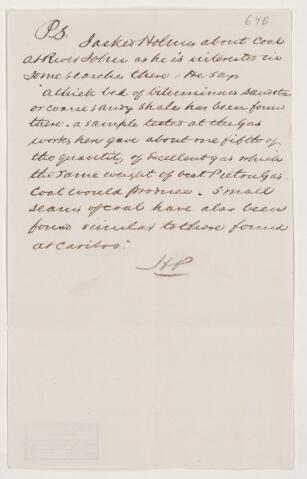 64B
P.S.
I asked Holmes about Coal
at River John as he is interested in
some searches there - He says
"a thick bed of bituminous sandstone
or coarse sandy shale has been found
there - a sample tested at the Gas
works here gave about one fifth of
the quantity of excellent gas which
the same weight of best Pictou Gas
Coal would produce - small
seams of coal have also been
found similar to those found
at Cariboo."
HP